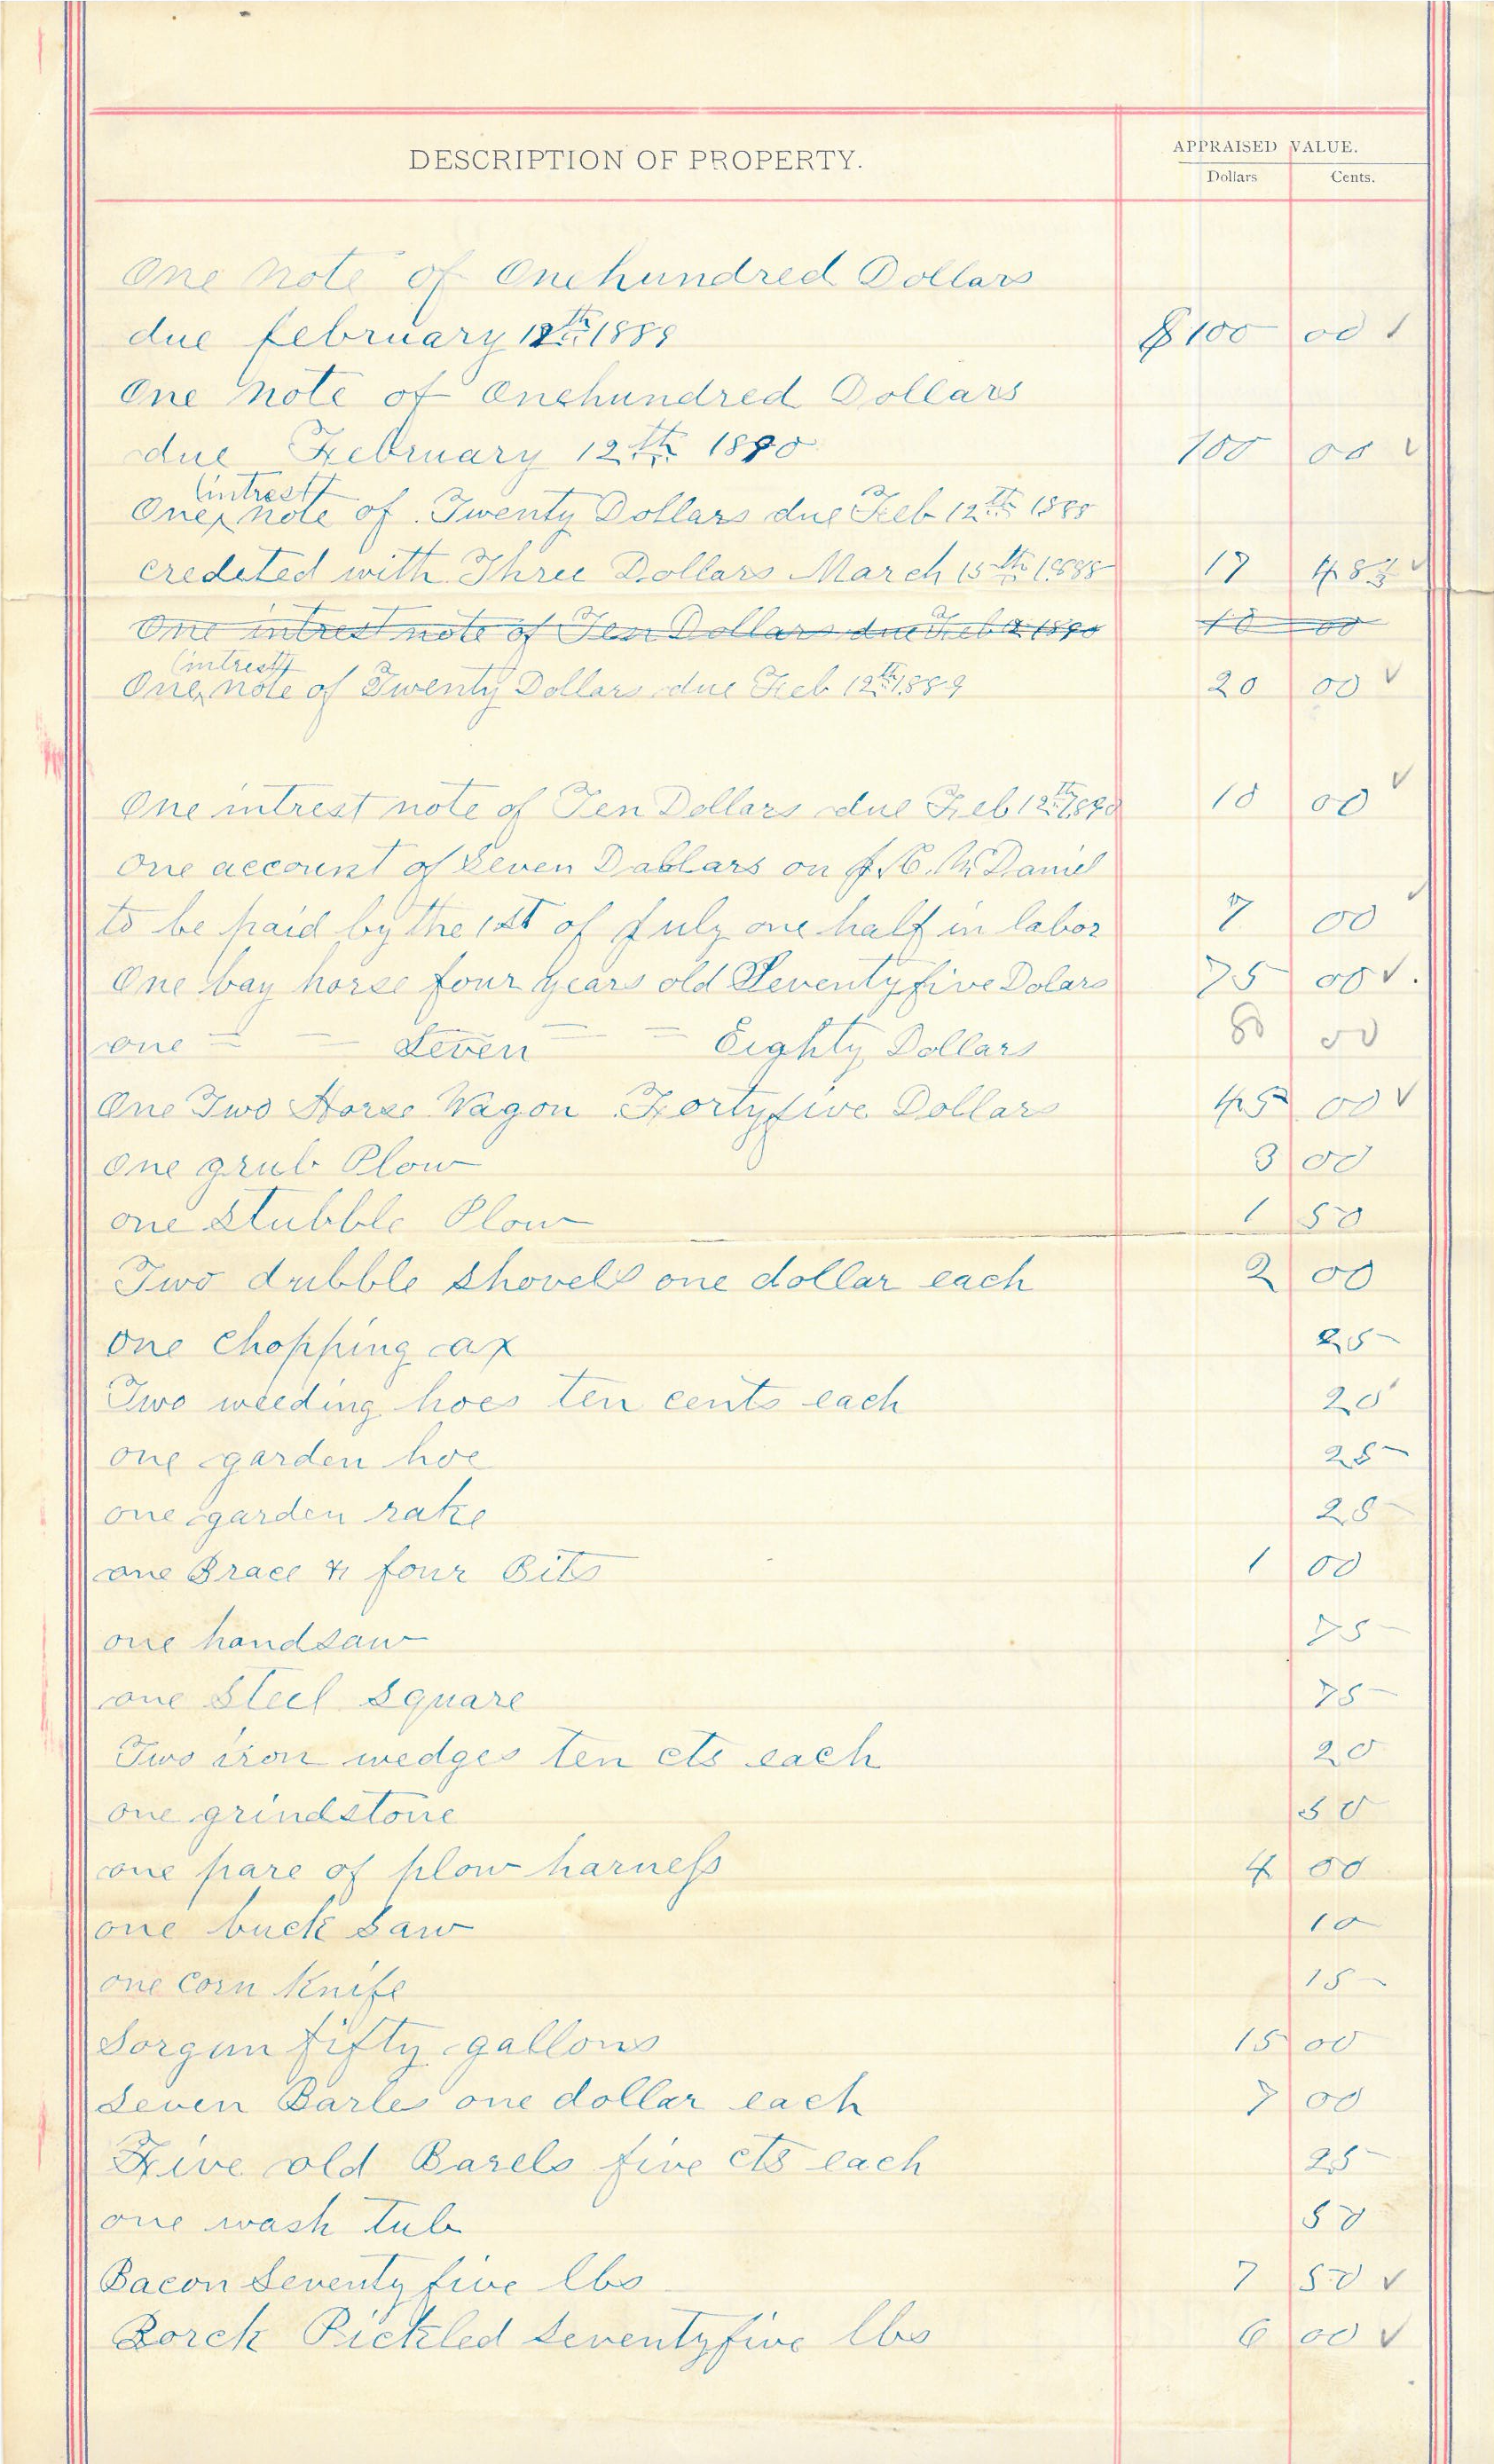 DESCRIPTION OF PROPERTY.
APPRAISED VALUE.
Dollars Cents.
One Note of Onehundred Dollars
due february 12th 1889 $100 00
One Note of Onehundred Dollars
due February 12th 1890 100 00 ✓
(intrest)
One note of Twenty Dollars due Feb 12th 1888
credeted with Three Dollars March 15th 1888 17 48 ✓
One intrest note of Ten Dollars due Feb 12 1890 10 00
(intrest)
One note of Twenty Dollars due Feb 12th 1889 20 00 ✓
One intrest note of Ten Dollars due Feb 12th 1890 10 00 ✓
One account of Seven Dablars on McDaniel
to be paid by the 1st of July one half in labor 7 00 ✓
One bay horse four years old Seventyfive Dolars 75 00 ✓.
one = – Seven – = Eighty Dollars 80 00
One Two Horse Wagon Fortyfive Dollars 45 00 ✓
One grub Plow 3 00
one Stubble Plow 1 50
Two dubble Shovels one dollar each 2 00
One Chopping ax 25
Two weeding hoes ten cents each 20
one garden hoe 25
one garden rake 25
one Brace & four Bits 1 00
one handsaw 75
one Steel Square 75
Two iron wedges ten cts each 20
one grindstone 50
one pare of plow harness 4 00
one buck Saw 10
one Corn Knife 15
Sorgum fifty gallons 15 00
Seven Barles one dollar each 7 00
Five old Barels five cts each 25
one wash tub 50
Bacon Seventy five lbs 7 50 ✓
Porck Pickled Seventyfive lbs 6 00 ✓